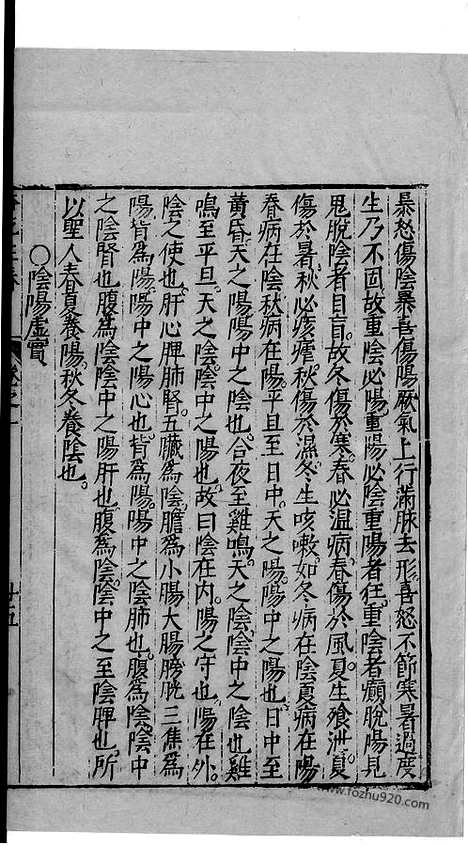 暴怒傷陰暴喜傷陽厥氣上行滿脉去形喜怒不節寒暑過度
生乃不固故重陰必陽重陽必陰重陽者狂重陰者癲脫陽見
鬼脫陰者目盲故冬傷於寒春必温病春傷於風夏生飧泄夏
傷於暑秋必痎瘧秋傷於濕冬生咳嗽如冬病在陰夏病在陽
春病在陰秋病在陽平旦至日中天之陽陽中之陽也日中至
黄昏天之陽陽中之陰也合夜至雞鳴天之陰陰中之陰也雞
鳴至平旦天之陰陰中之陽也故曰陰在内陽之守也陽在外
陰之使也肝心脾肺腎五臟為陰膽為小腸大腸膀胱三焦為
陽背為陽陽中之陽心也背為陽陽中之陰肺也腹為陰陰中
之陰腎也腹為陰陰中之陽肝也腹為陰陰中之至陰脾也所
以聖人春夏養陽秋冬養陰也
○陰陽虚實
廿五
www.fozhu920.com